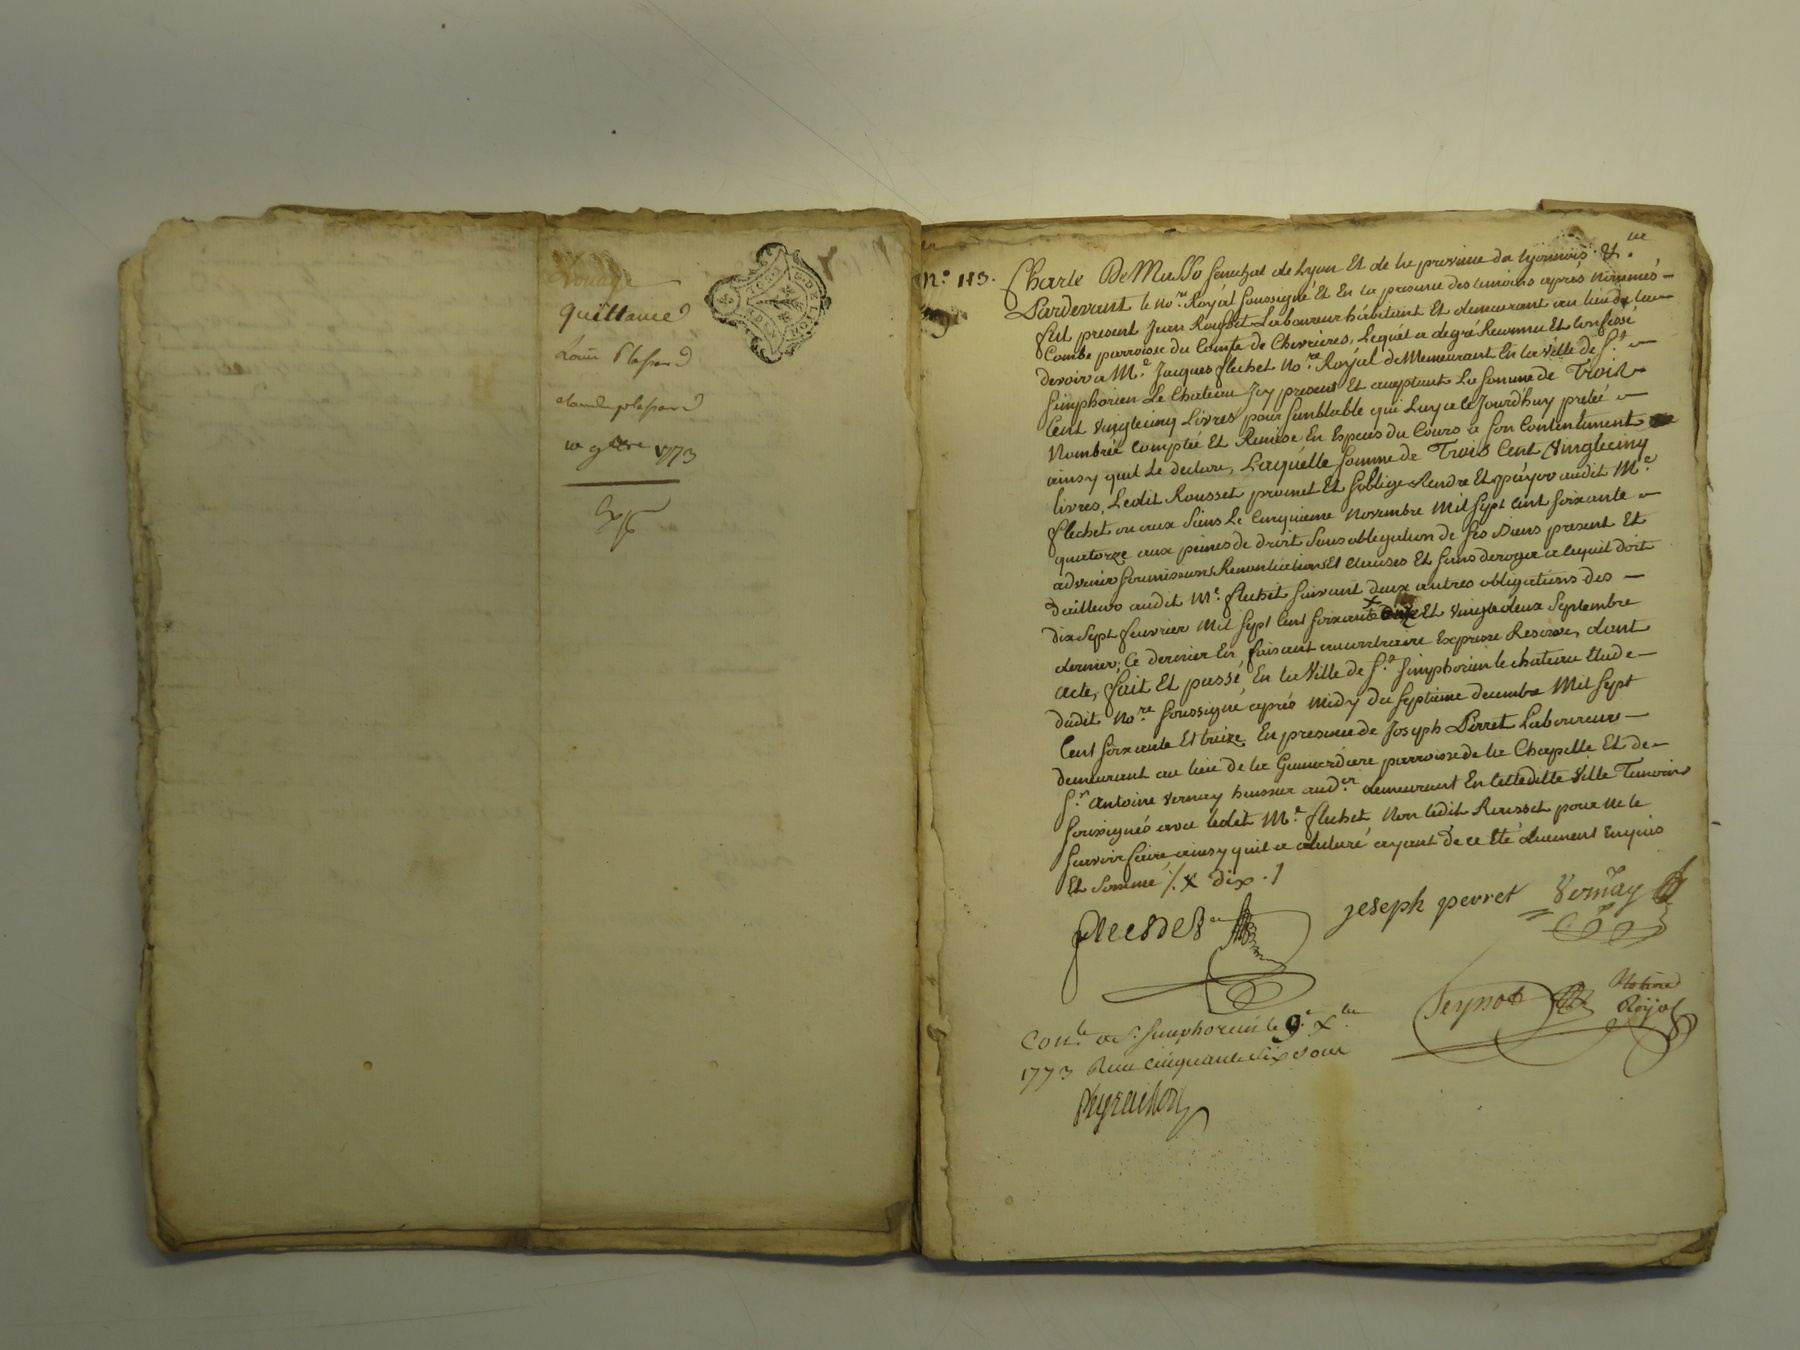 quittance
Louis Plasson
claude plasson
10 9bre 1773
Exp
N.° 113.
Charle De Masso senechal de Lyon Et de la province du lyonnois. &.
Pardevant le no.re Royal soussigné Et En la presence des temoins après nommés
fut present Jean Rousset Laboureur habitant Et demeurant au lieu de la
Combe parroisse du Comte de Chevrieres, Lequel a degré Reconnu Et Confessé
devoir a M.e Jacques flechet No.re Royal demeurant En la ville de S.t
simphorien Le Chateau Icy present Et aceptant La somme de Trois
Cent vingtcinq Livres pour semblable qui Luy a cejourdhuy preté
Nombrée Comptée Et Remise En Especes du Cours a son Contentement
ainsy quil Le declare, Laquelle somme de Trois Cent Vingtcinq
livres, Ledit Rousset promet Et soblige Rendre Et payer audit M.e
flechet ou aux siens Le Cinquieme Novembre Mil sept Cent soixante
quatorze aux peines de droit sous obligation de ses biens present Et
advenir soumissions Renonciations Et clauses Et sans deroger a ce quil doit
dailleurs audit M.e flechet suivant deux autres obligations des
dix sept fevrier Mil sept Cent soixante x Et vingtedeux Septembre
dernier, Ce dernier En faisant au contraire Expresse Reserve, dont
acte, fait Et passé En la ville de S.t simphorien le chateau Etude
dudit No.re soussigné après Midy du septieme decembre Mil sept
Cent soixante Et treize En presence de Joseph Perret Laboureur
demeurant au lieu de la parroisse de la Chapelle Et de
s.r antoine vernay huissier aud.er demeurant En cetteditte ville Temoins
soussignés avec ledit M.e flechet Non ledit Rousset pour ne le
savoir faire ainsy quil a declaré ayant de ce Eté duement Enquis
Et sommé /. x dix ./
joseph perret Vernay
Notaire
Royal
Con.lé a S.t simphorien le 9.e x.bre
1773 Recu cinquante six sous